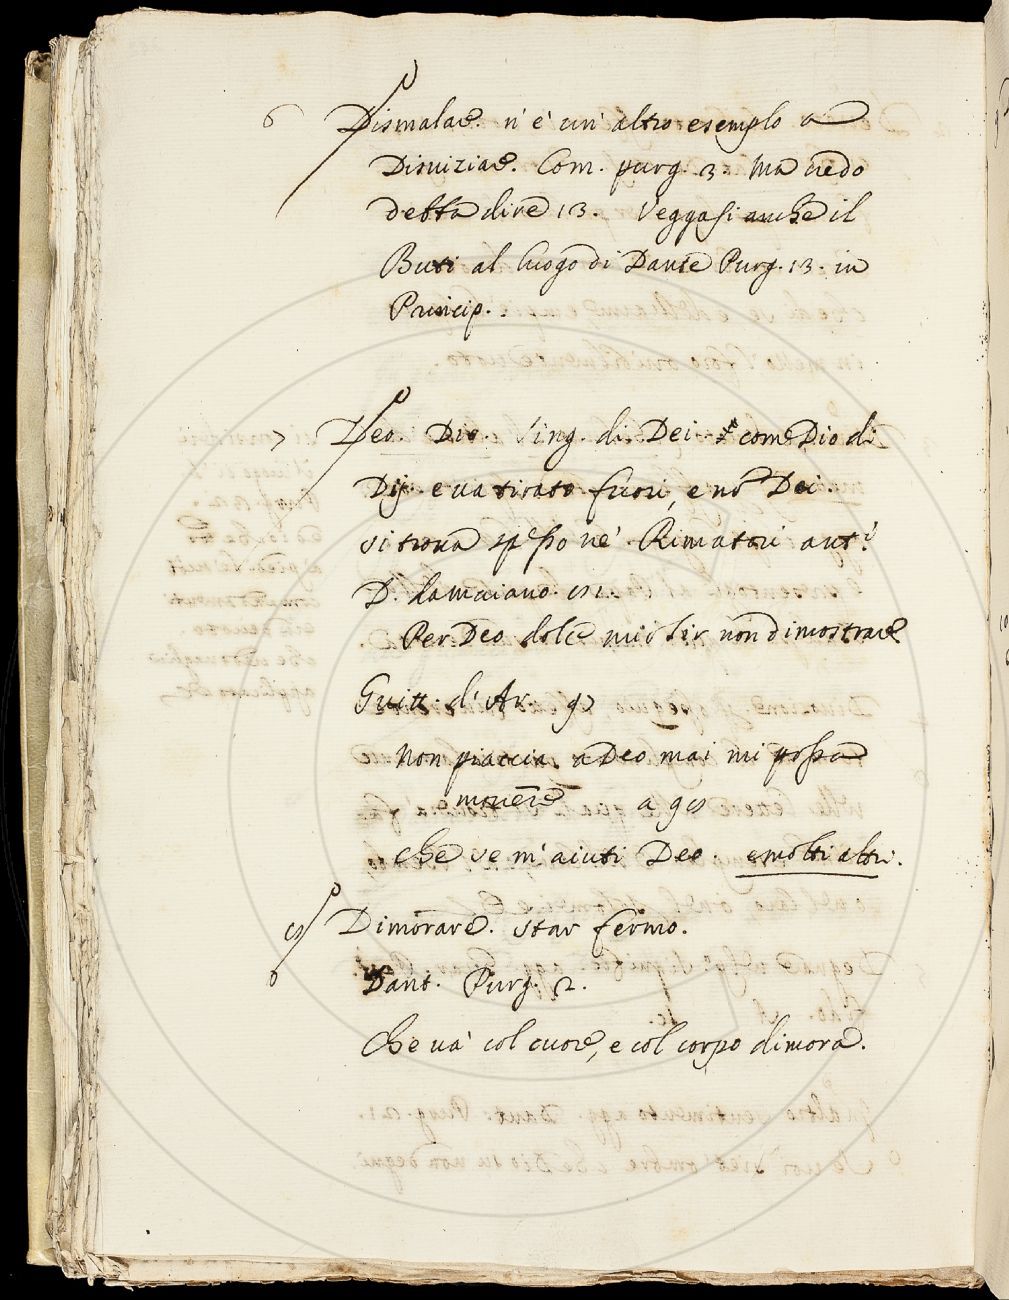 6 Dismalare. n' è un' altro esempio a
Disviziare. Com. purg. 3. Ma credo
debba dire 13. Veggasi anche il
Buti al luogo di Dante Purg. 13. in
Princip.
7 Deo. Dio. Sing. di Dei come Dio di
Dij. e va tirato fuori, e nõ Dei.
si trova spesso ne' Rimatori ant.i
D. da Maiano.
Per Deo dolce mio sir non dimostrare
Guitt. d' Ar. 92
Non piaccia a Deo mai mi possa
movere a 98
che se m' aiuti Deo. e molti altri.
8 Dimorare. star fermo.
Dant. Purg. 2.
Che va' col cuore, e col corpo dimora.